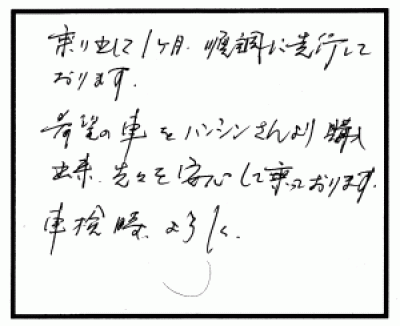 乗り出して1ヶ月.順調に走行して
おります.
希望の車をハンシンさんより購入
出来.先々を安心して乗っております.
車検時、よろしく.